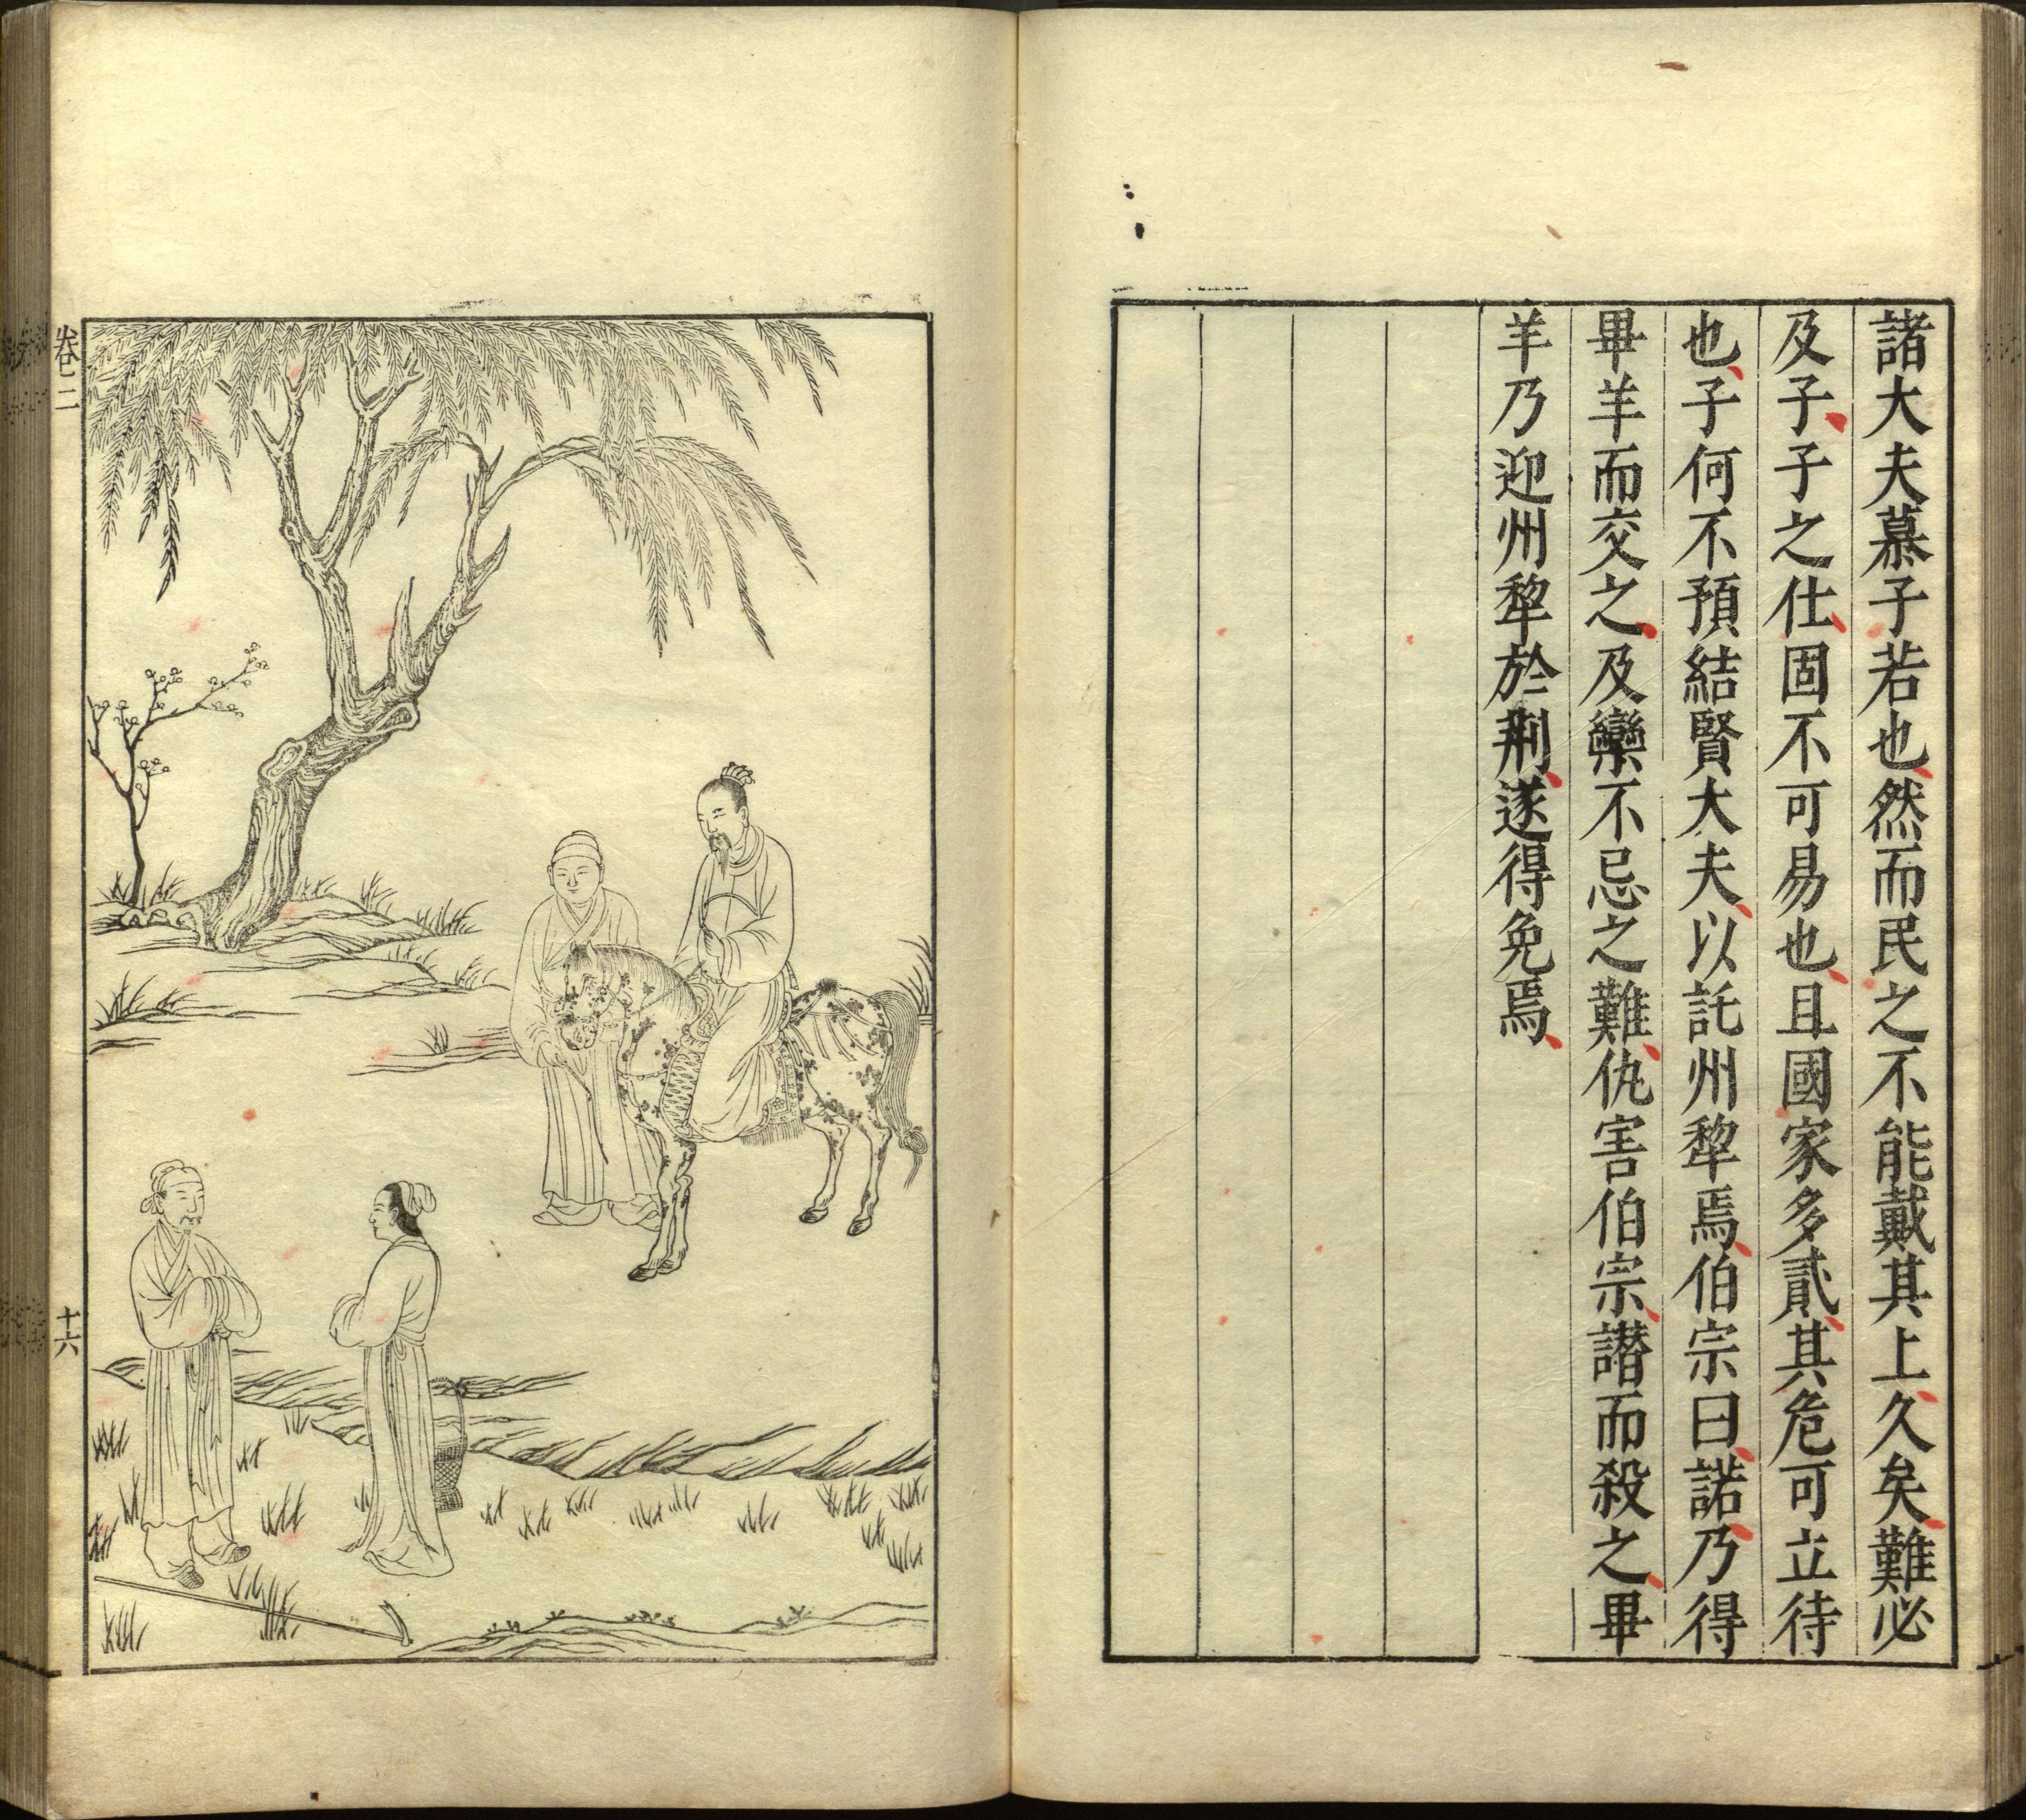 諸大夫慕子若也然而民之不能戴其上久矣難必
及子子之仕固不可易也且國家多貳其危可立待
也子何不預結賢大夫以託州犂焉伯宗曰諾乃得
畢羊而交之及欒不忌之難仇害伯宗譖而殺之畢
羊乃迎州犂於荆遂得免焉
卷二
十六